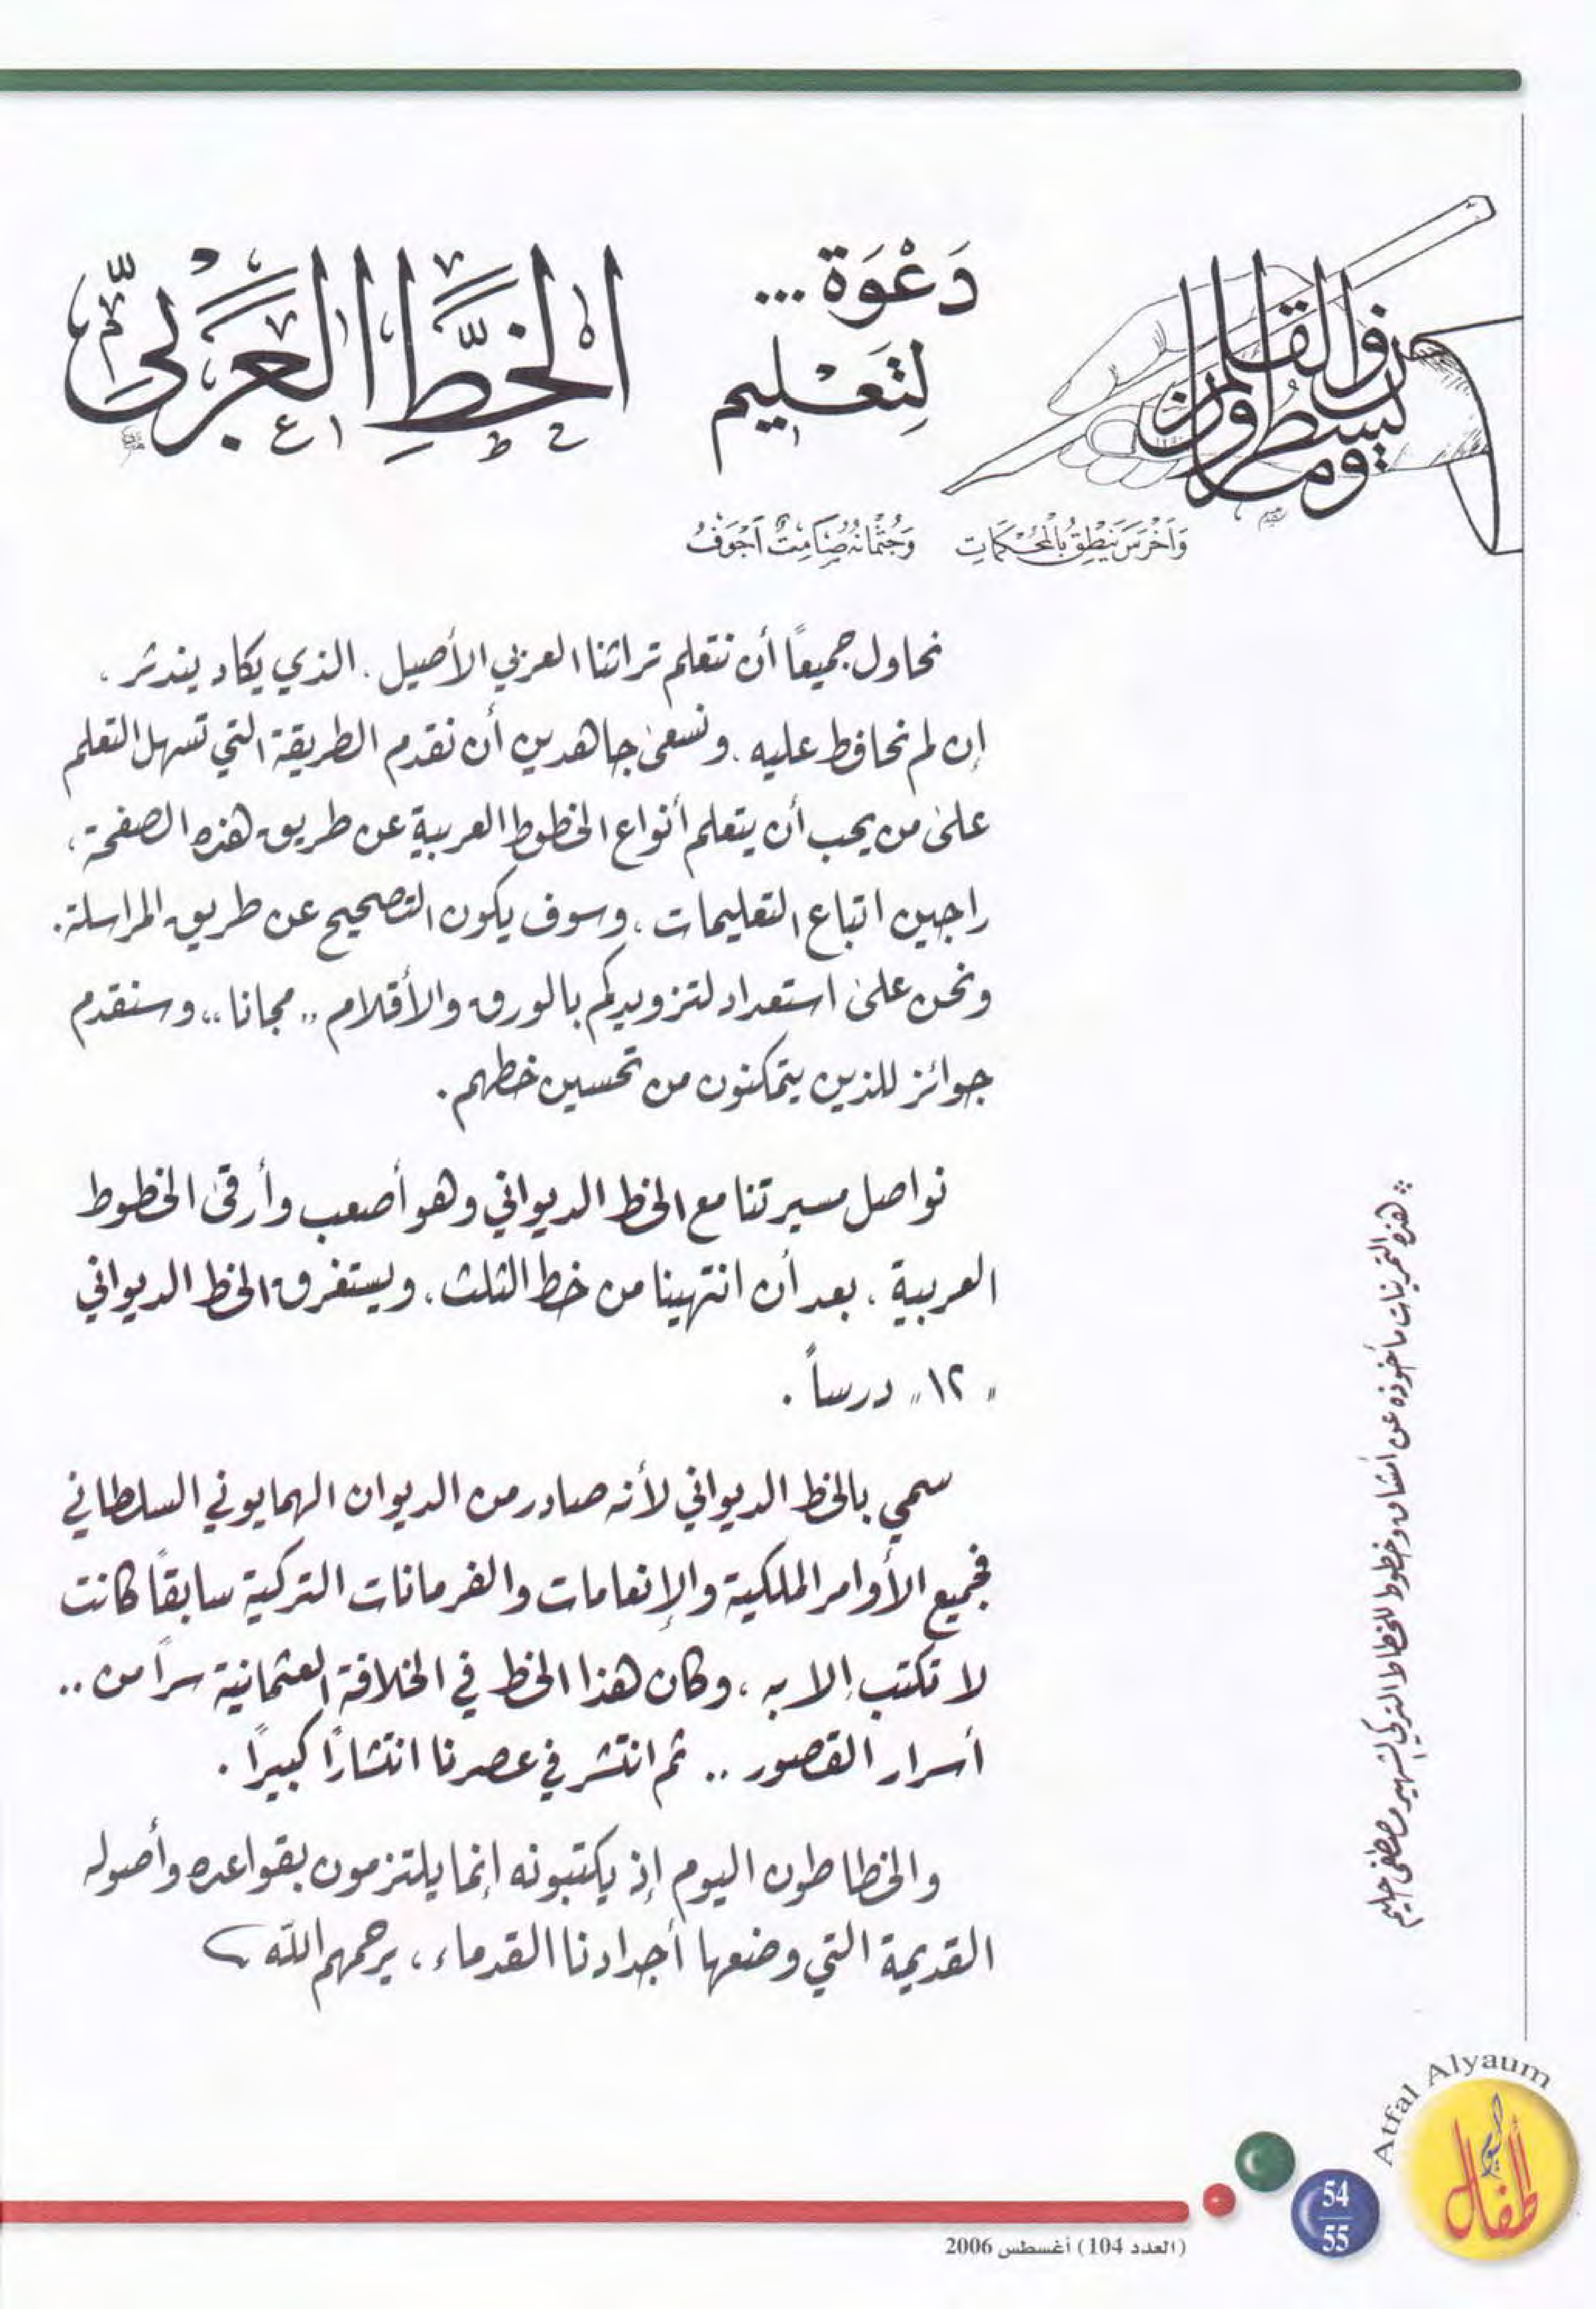 ن والقلم وما يسطرون
دَعْوَة...
لِتَعْليم
الخَطِّ العَرَبيّ
وَأَخْرَسَ يَنْطِقُ بِالْمُحْكَمَاتِ وَجُثْمَانُهُ صَامِتٌ أَجْوَفُ
نحاول جميعاً أن نتعلم تراثنا العربي الأصيل، الذي يكاد يندثر،
إن لم نحافظ عليه، ونسعى جاهدين أن نقدم الطريقة التي تسهل التعلم
على من يحب أن يتعلم أنواع الخطوط العربية عن طريق هذه الصفحة،
راجين اتباع التعليمات، وسوف يكون التصحيح عن طريق المراسلة.
ونحن على استعداد لتزويدكم بالورق والأقلام "مجانا"، وسنقدم
جوائز للذين يتمكنون من تحسين خطهم.
نواصل مسيرتنا مع الخط الديواني وهو أصعب وأرقى الخطوط
العربية، بعد أن انتهينا من خط الثلث، ويستغرق الخط الديواني
"١٢" درساً.
سمي بالخط الديواني لأنه صادر من الديوان الهمايوني السلطاني
فجميع الأوامر الملكية والإنعامات والفرمانات التركية سابقاً كانت
لا تكتب إلا به، وكان هذا الخط في الخلافة العثمانية سراً من ..
أسرار القصور .. ثم انتشر في عصرنا انتشاراً كبيراً.
والخطاطون اليوم إذ يكتبونه إنما يلتزمون بقواعده وأصوله
القديمة التي وضعها أجدادنا القدماء، يرحمهم الله
* هذه التمرينات مأخوذه عن أمشاق وخطوط للخطاط التركي الشهير مصطفى حليم
Atfal Alyaum
أطفال اليوم
54
55
(العدد 104) أغسطس 2006